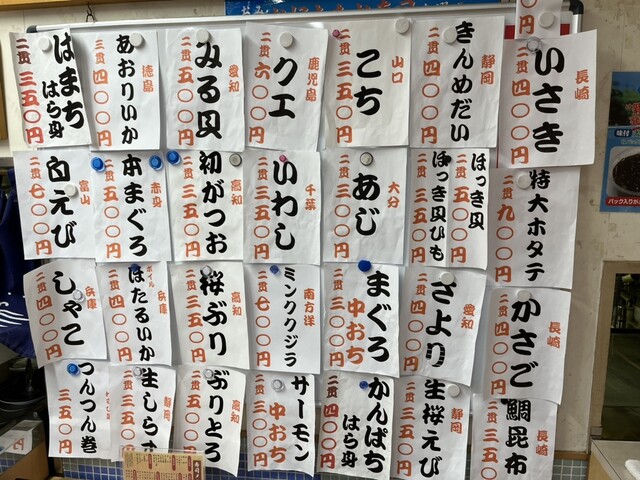 長崎
いさき
二貫 四〇〇円
静岡
きんめだい
二貫 四〇〇円
山口
こち
二貫 三五〇円
鹿児島
クエ
二貫 六〇〇円
愛知
みる貝
二貫 五〇〇円
徳島
あおりいか
二貫 四〇〇円
はまち
はら身
二貫 三五〇円
特大ホタテ
二貫 九〇〇円
ほっき貝
二貫 五〇〇円
ほっき貝ひも
二貫 三五〇円
大分
あじ
二貫 三五〇円
千葉
いわし
二貫 三五〇円
高知
初がつお
二貫 三五〇円
赤身
本まぐろ
二貫 三五〇円
富山
白えび
二貫 七〇〇円
長崎
かさご
二貫 四〇〇円
愛知
さより
二貫 四〇〇円
まぐろ
中おち
二貫 三五〇円
南方洋
ミンククジラ
二貫 七〇〇円
高知
桜ぶり
二貫 三五〇円
兵庫
ボイル
ほたるいか
二貫 四〇〇円
兵庫
しゃこ
二貫 四〇〇円
長崎
鯛昆布
二貫 三五
静岡
生桜えび
二貫
かんぱち
はら身
二貫 四〇〇円
サーモン
中おち
二貫 三〇〇円
高知
ぶりとろ
二貫 三五〇円
静岡
生しらす
二貫 三五〇円
つんつん巻
三五〇円
味付